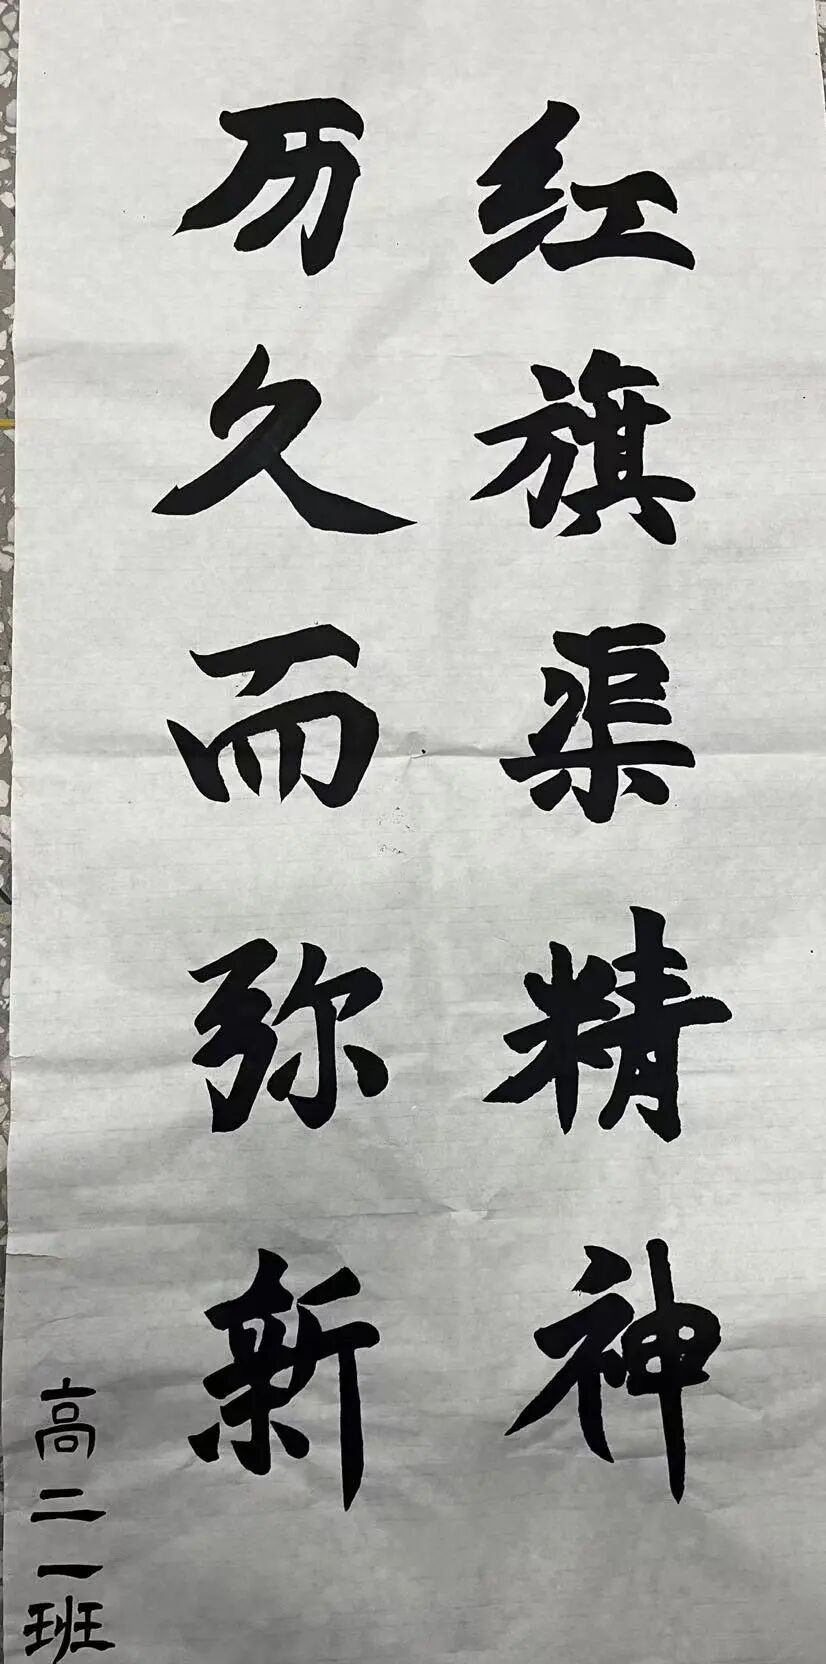 红旗渠精神
历久而弥新
高二一班